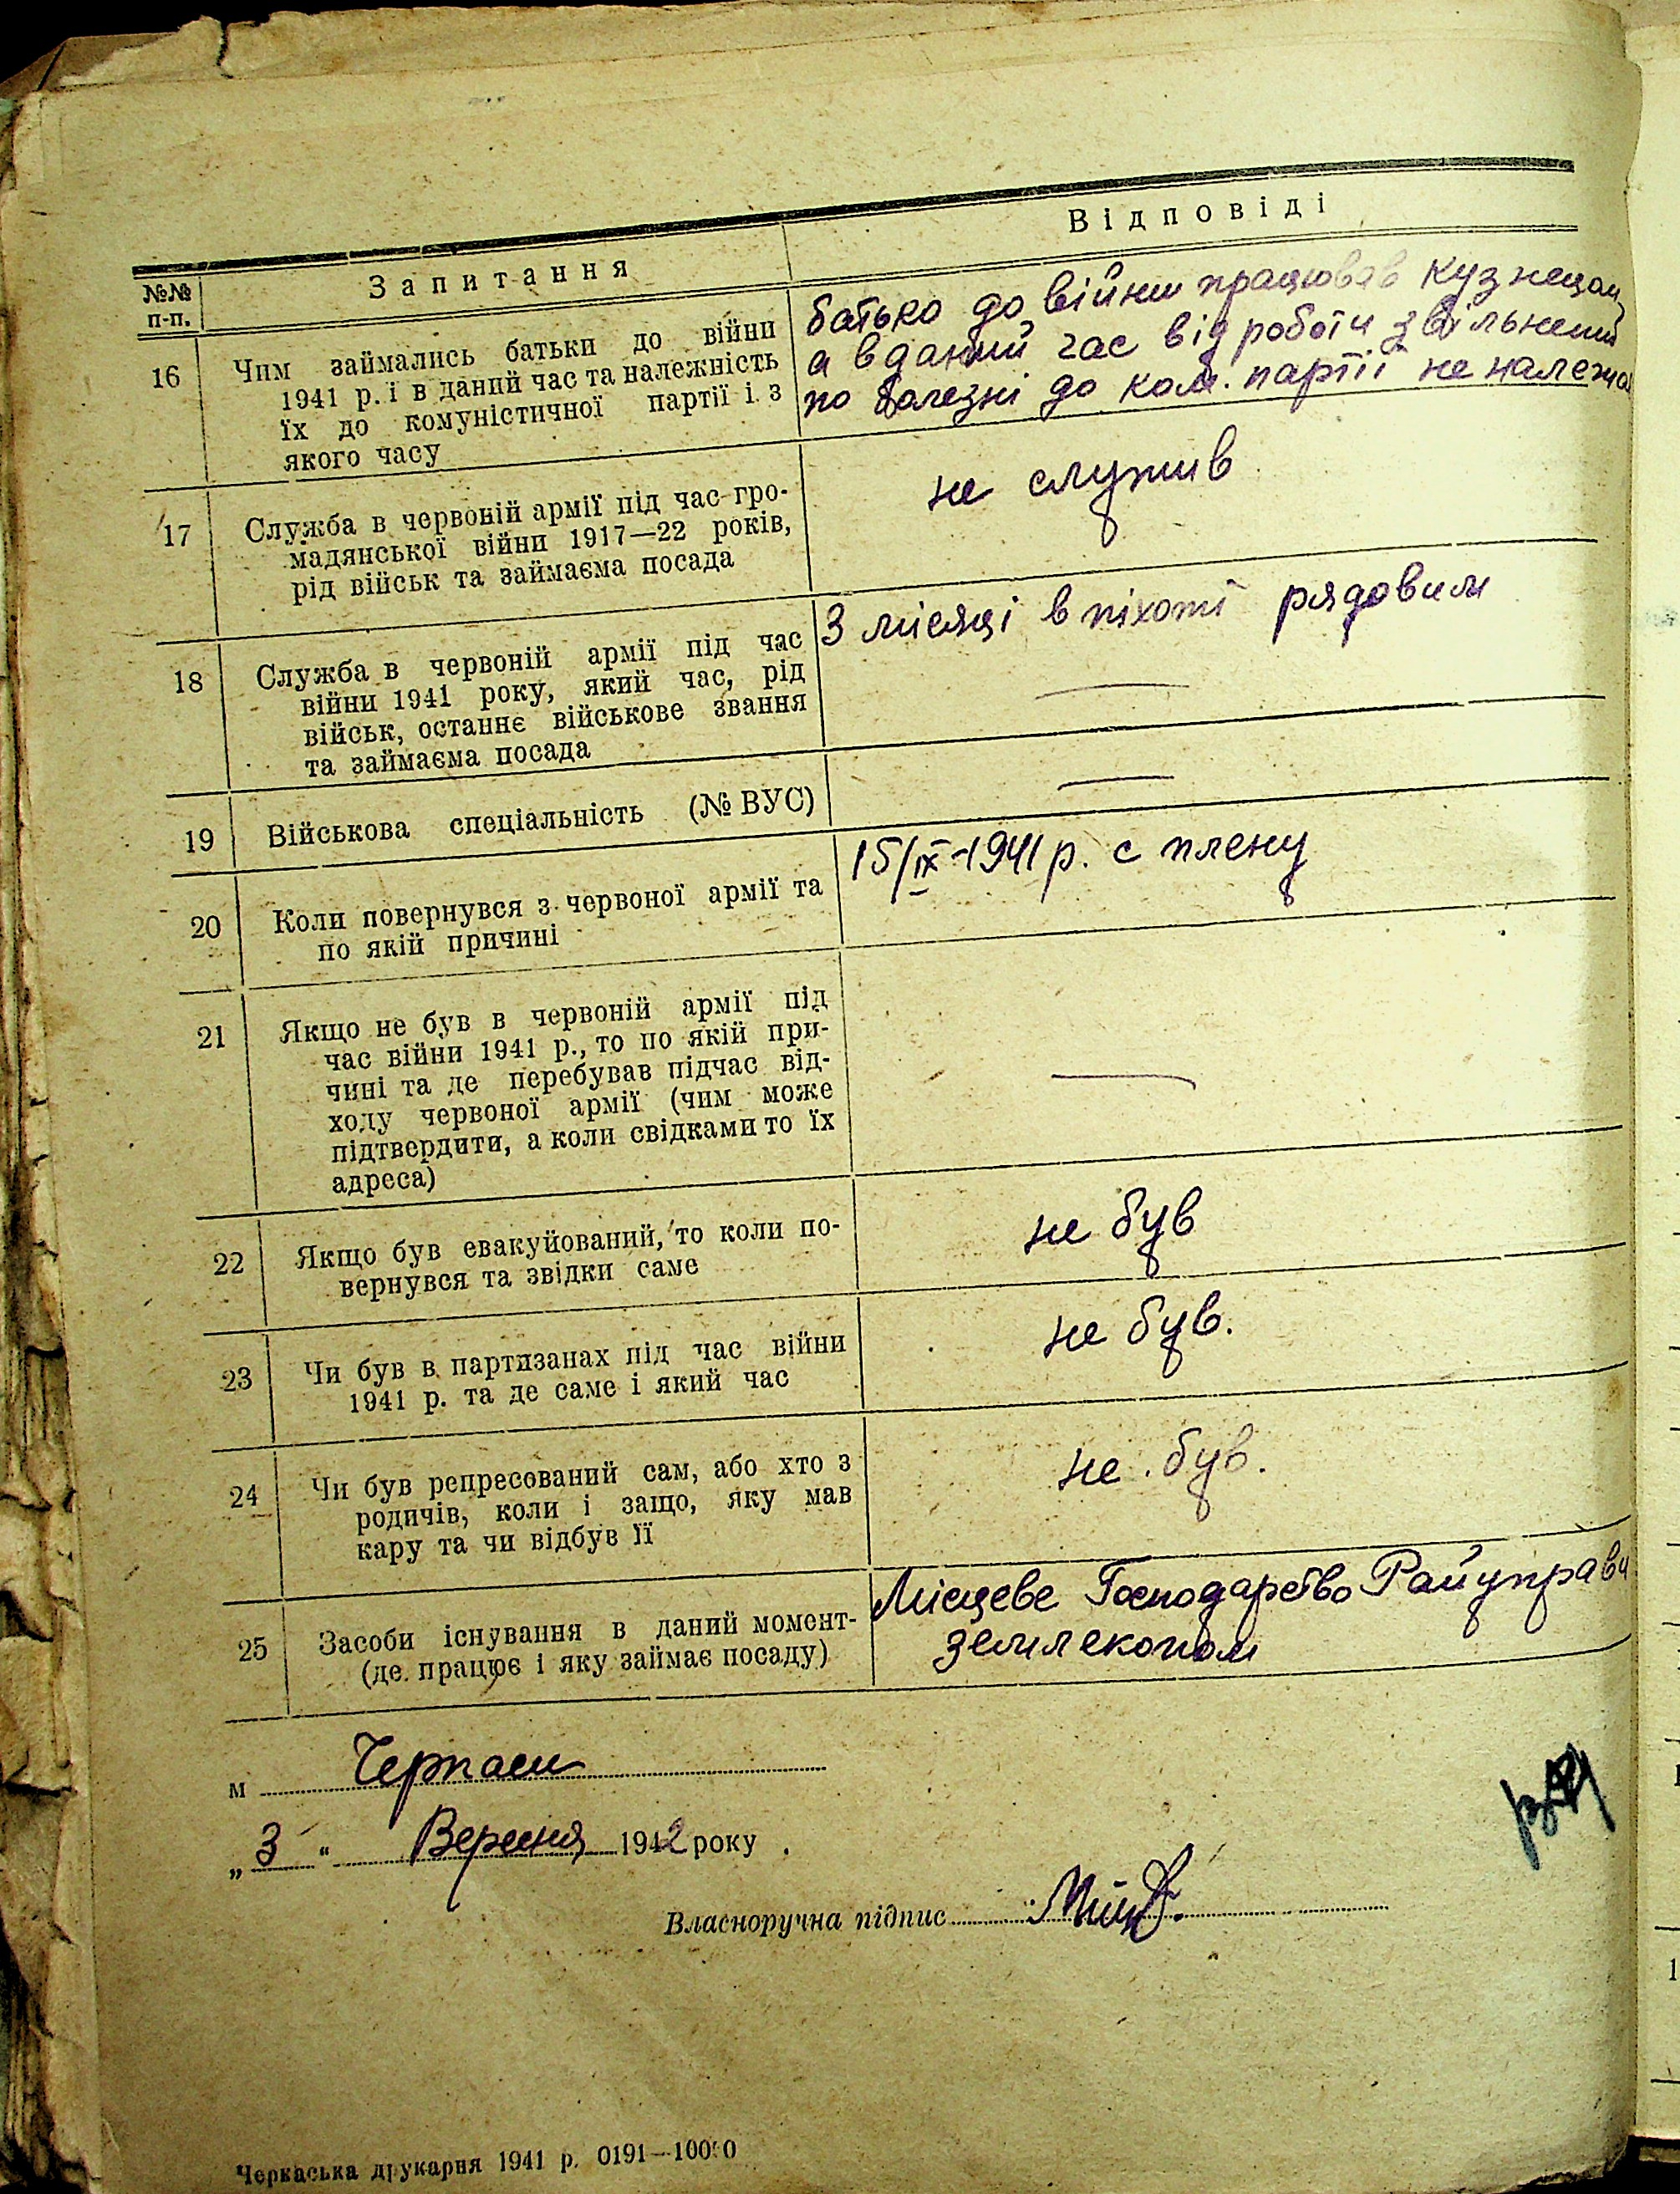 №№ п-п. Запитання Відповіді
16 Чим займались батьки до війни
1941 р. і в даний час та належність
їх до комуністичної партії і з
якого часу
батько до війни працював кузнецом,
а в даний час від роботи звільнений
по болезні до ком. партії не належав
17 Служба в червоній армії під час гро-
мадянської війни 1917—22 років,
рід військ та займаєма посада
не служив
18 Служба в червоній армії під час
війни 1941 року, який час, рід
військ, останнє військове звання
та займаєма посада
3 місяці в піхоті рядовим
—
19 Військова спеціальність (№ ВУС)
—
20 Коли повернувся з червоної армії та
по якій причині
15/IX-1941 р. с плену
21 Якщо не був в червоній армії під
час війни 1941 р., то по якій при-
чині та де перебував підчас від-
ходу червоної армії (чим може
підтвердити, а коли свідками то їх
адреса)
—
22 Якщо був евакуйований, то коли по-
вернувся та звідки саме
не був
23 Чи був в партизанах під час війни
1941 р. та де саме і який час
не був.
24 Чи був репресований сам, або хто з
родичів, коли і защо, яку мав
кару та чи відбув її
не був.
25 Засоби існування в даний момент-
(де працює і яку займає посаду)
Місцеве Господарство Райуправи
землекопом
м Черкаси
„3“ Вересня 1942 року
Власноручна підпис
Черкаська друкарня 1941 р. 0191—10000